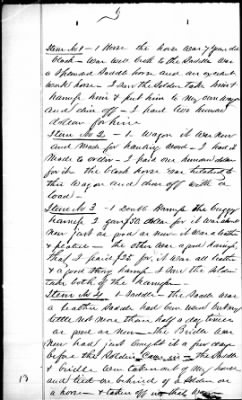 3
Item No 1 - 1 Horse the horse was 7 year old
black - was well broke to the Saddle was
a Splendid Saddle horse and an excellent
work horse - I saw the Soldiers take him &
harness him & put him to my own wagon
and drive off - I paid two hundred
dollars for him
Item No 2 - 1 Wagon it was new
and made for hauling wood - I had it
made to order - I paid one hundred dollars
for it the black horse was hitched to
this Wagon and drove off with a
load -
Item No 3 - 1 Double Harness the buggy
harness I gave $50 dollars for it was
new just as good as new it was a leather
& - the other was a good harness
that I paid $25 for. it was all leather
& a good strong harness I saw the Soldiers
take both of the harness -
Item No 4 - 1 Saddle - the Saddle was
a leather Saddle had been used but very
little not more than half a day times
as good as new - the Bridle was
new had just bought it a few days
before the Soldiers Came in - the Saddle
& bridle was taken out of my house
and tied on behind of a Soldier on
a horse - & taken off
13